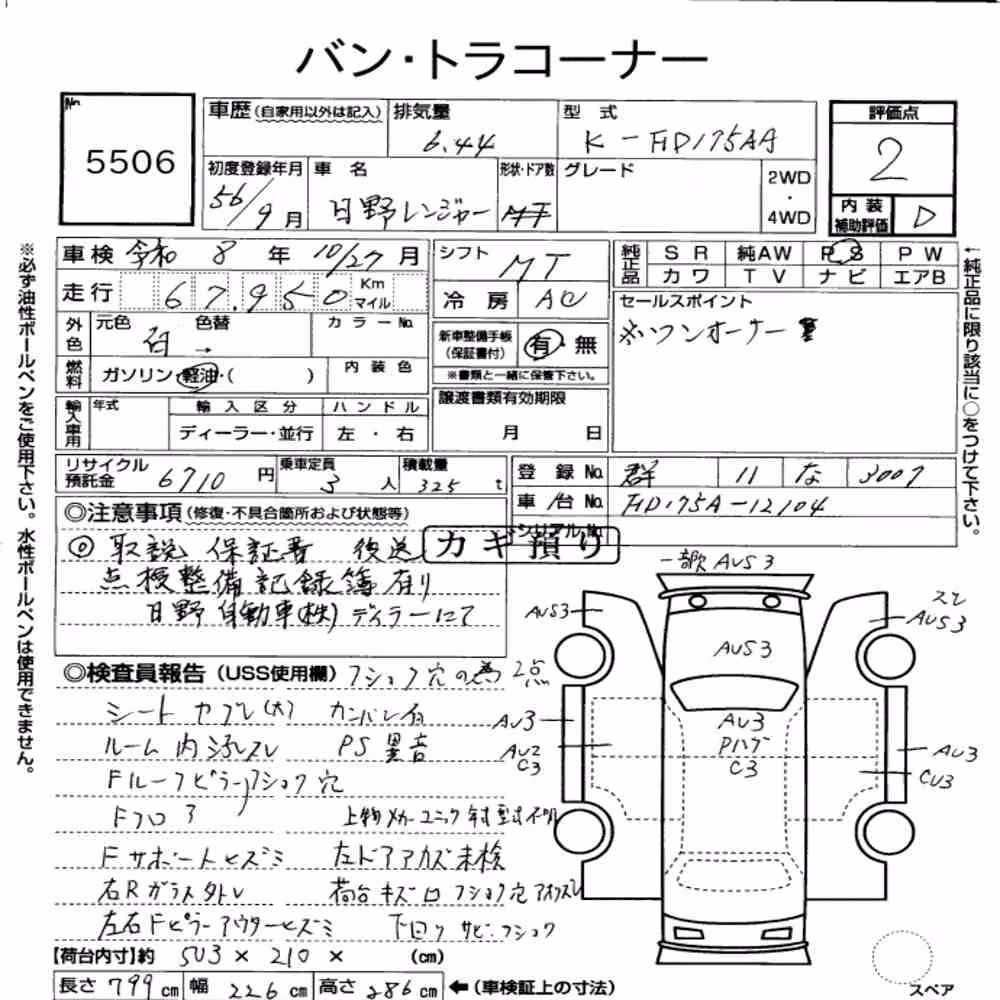 バン・トラコーナー
No.
5506
車歴 (自家用以外は記入)
排気量
6.44
型式
K-FD175AA
評価点
2
初度登録年月
56/9月
車名
日野レンジャー
形状・ドア数
グレード
2WD
・
4WD
内装
補助評価
D
車検 令和 8年 10/27月
シフト
MT
純正品
SR 純AW PS PW
カワ TV ナビ エアB
走行 67,950 Km マイル
冷房 AC
セールスポイント
※ワンオーナー車
外色
元色 色替
白 →
カラーNo.
新車整備手帳
(保証書付)
有・無
※書類と一緒に保管下さい。
燃料
ガソリン・軽油・( )
内装色
譲渡書類有効期限
月 日
輸入車用
年式
輸入区分
ハンドル
ディーラー・並行
左・右
リサイクル
預託金
6710円
乗車定員
3人
積載量
325t
登録No.
群 11 な 3007
車台No.
FD175A-12104
シリアルNo.
◎注意事項(修復・不具合箇所および状態等)
カギ預り
◎取説 保証書 後送
点検整備記録簿有り
日野自動車(株)ディラーにて
◎検査員報告(USS使用欄) フショク穴の為 2点
シート ヤブレ(大)
ルーム内 汚レスレ PS異音
Fルーフピラーフショク穴
Fフロア
上物メーカーユニック 年式型式不明
Fサポートヒズミ 左ドアアカズ未検
右Rガラス外レ 荷台キズ凹 フショク穴
左右Fピラーアウターヒズミ 下回り サビ・フショク
【荷台内寸】約 503 × 210 × (cm)
長さ 799cm 幅 226cm 高さ 286cm ←(車検証上の寸法)
スペア
一部欠 AUS3
AUS3
スレ
AUS3
AUS3
AU3
AU3
Pハゲ
C3
AU2
C3
AU3
CU3
※必ず油性ボールペンをご使用下さい。水性ボールペンは使用できません。
←純正品に限り該当に○をつけて下さい。